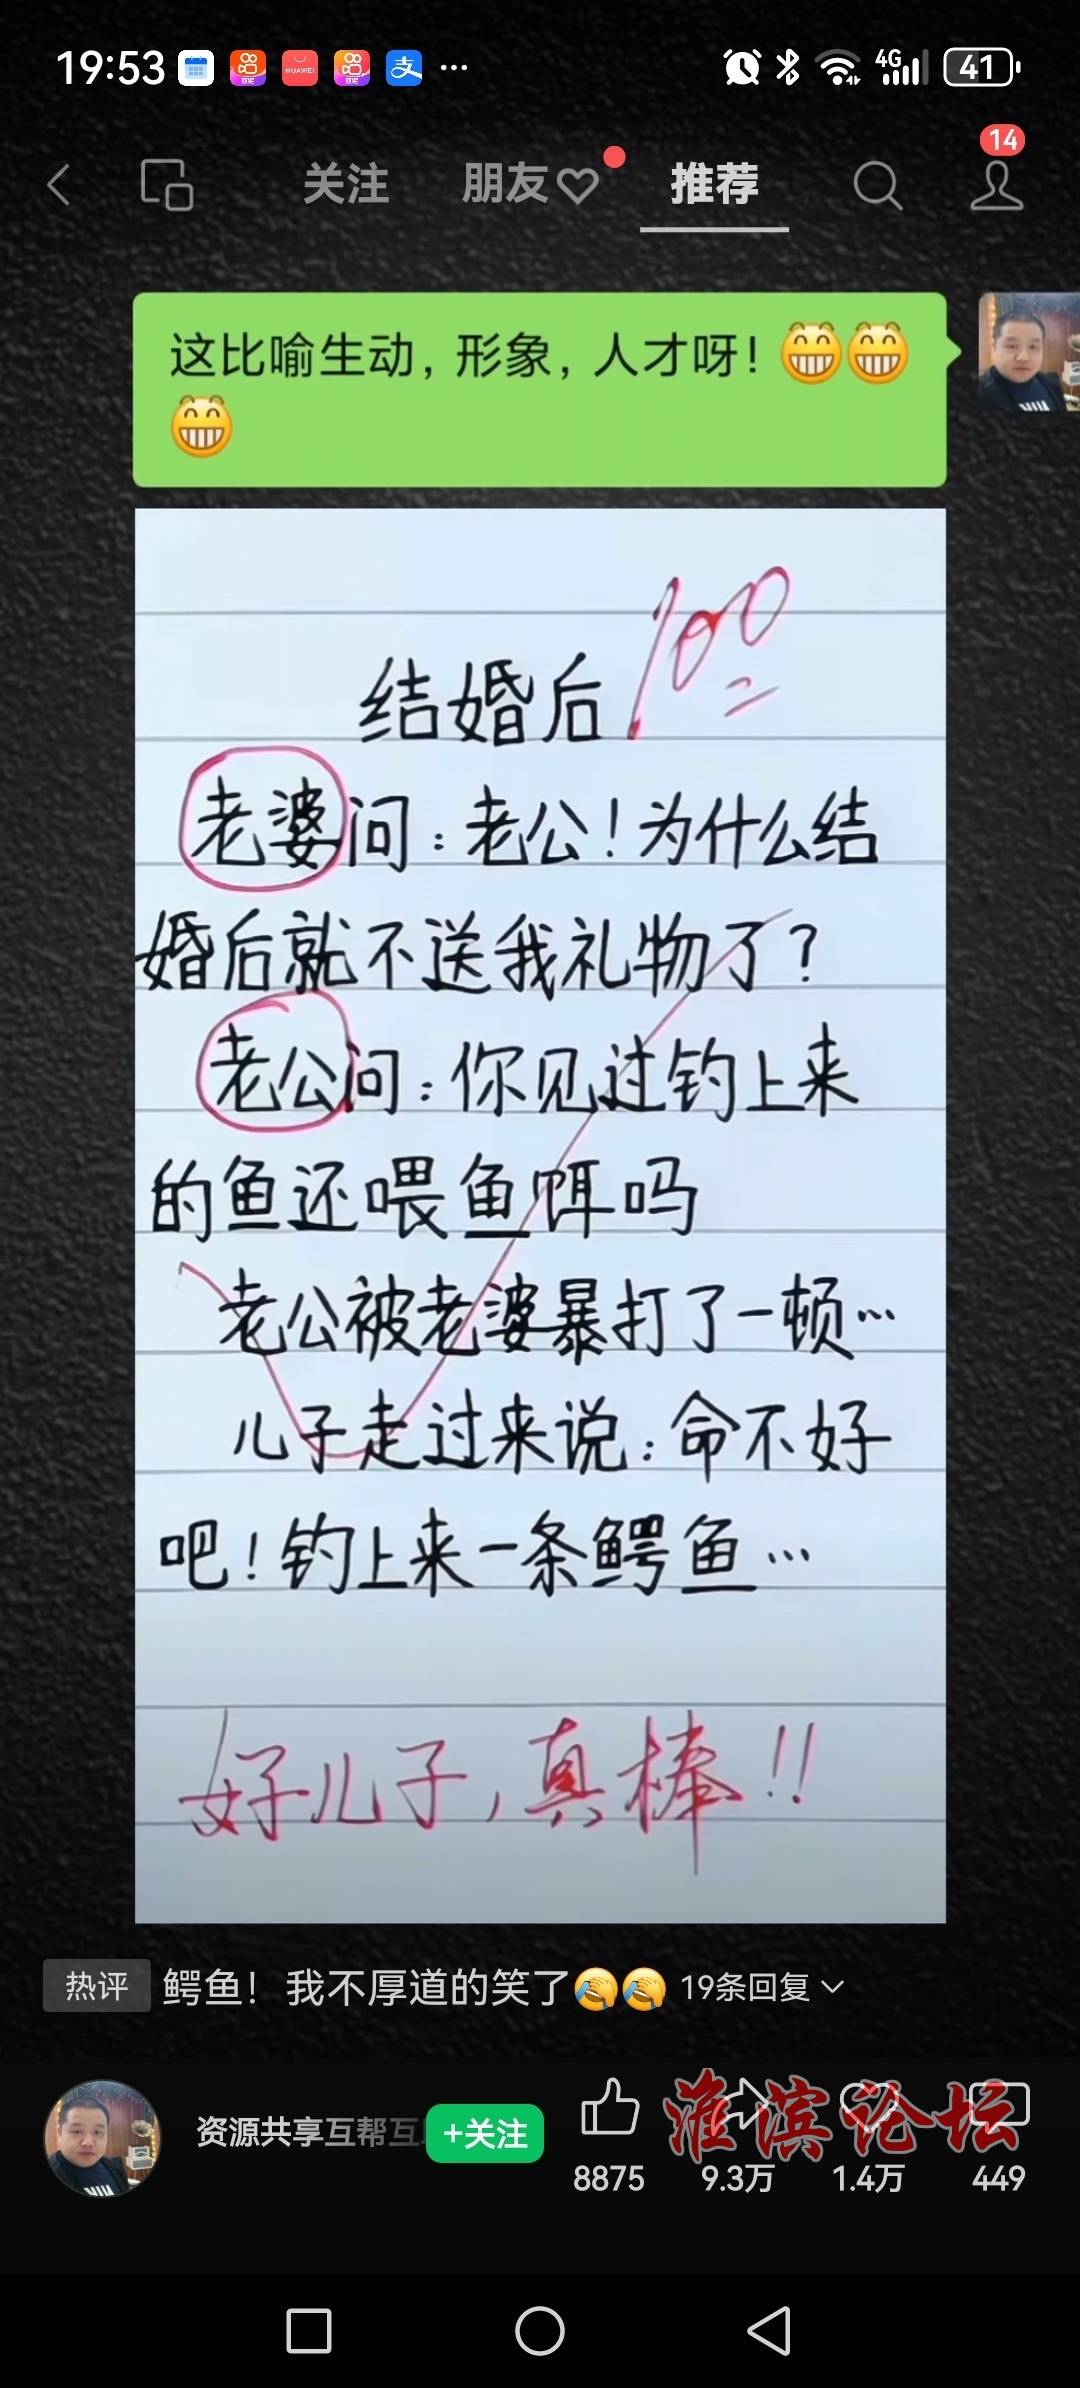 19:53
4G
41
关注
朋友
推荐
14
这比喻生动，形象，人才呀！😁😁
😁
100
结婚后
老婆问：老公！为什么结
婚后就不送我礼物了？
老公问：你见过钓上来
的鱼还喂鱼饵吗
老公被老婆暴打了一顿…
儿子走过来说：命不好
吧！钓上来一条鳄鱼…
好儿子，真棒!!
热评 鳄鱼！我不厚道的笑了🤣🤣 19条回复
资源共享互帮互
+关注
淮滨论坛
8875
9.3万
1.4万
449